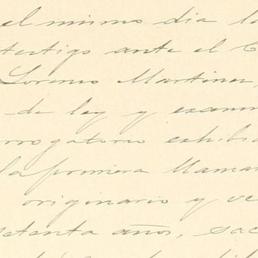 el mismo dia lo
testigo ante el C
Lorenzo Martinez,
de ley y examin
rrogatorio exhibi
la primera llamar
originario y ve
setenta años, sac